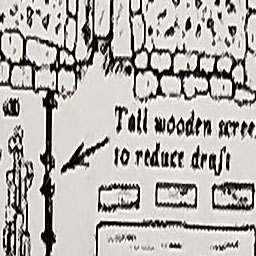 Tall wooden scree
to reduce draft